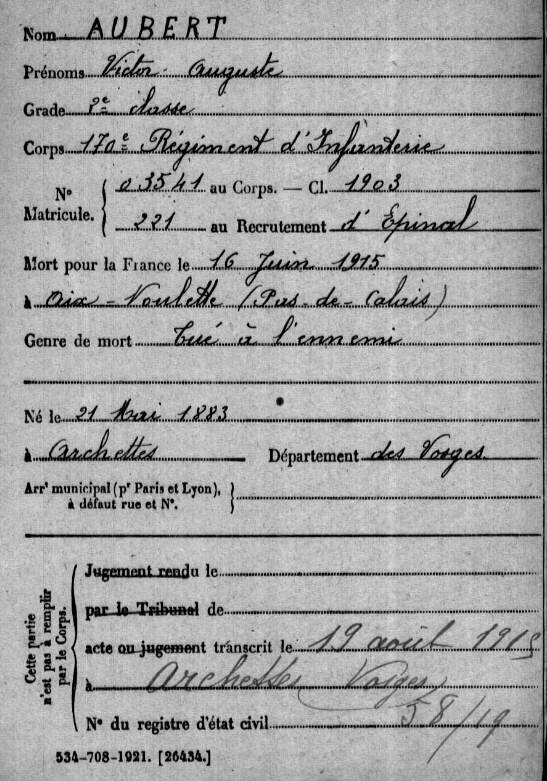 Nom AUBERT
Prénoms Victor Auguste
Grade 2e classe
Corps 170e Régiment d'Infanterie
No Matricule. { 03541 au Corps. — Cl. 1903
221 au Recrutement d'Epinal
Mort pour la France le 16 Juin 1915
à Aix-Noulette (Pas-de-Calais)
Genre de mort Tué à l'ennemi
Né le 21 Mai 1883
à Archettes Département des Vosges
Arrt municipal (pr Paris et Lyon),
à défaut rue et No.
Cette partie n'est pas à remplir par le Corps.
Jugement rendu le
par le Tribunal de
acte ou jugement transcrit le 19 août 1915
à Archettes Vosges
No du registre d'état civil 58/19
534-708-1921. [26434.]